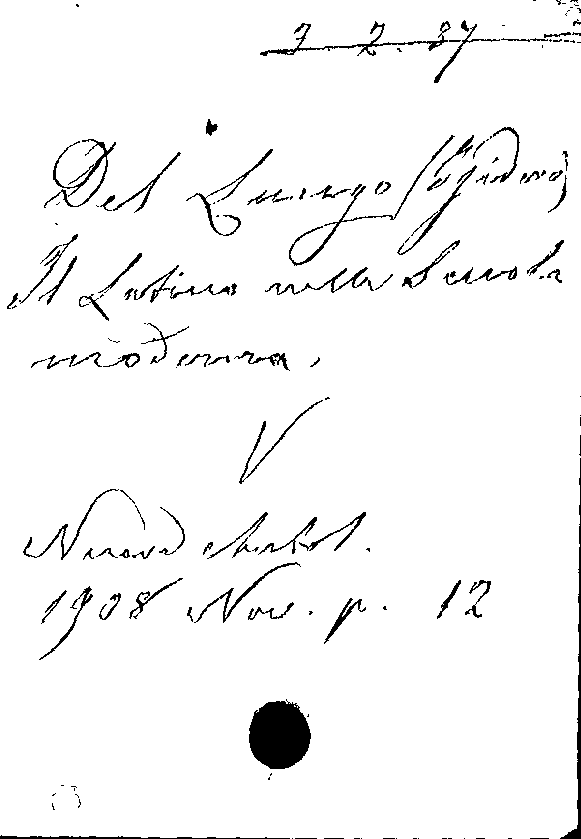 3.2.37
Del Lungo (Isidoro)
Il Latino nella Scuola
moderna,
V
Nuova Antol.
1908 Nov. p. 12